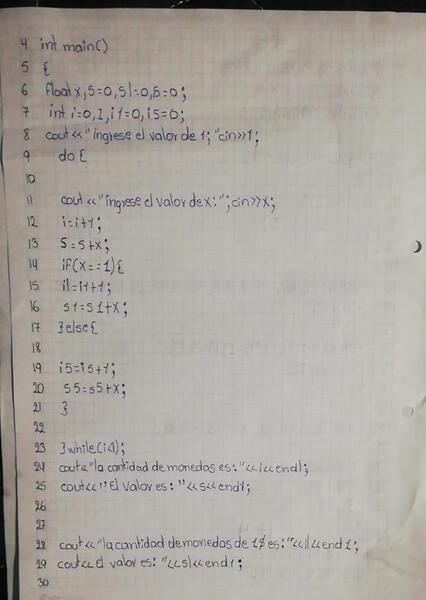 4 int main()
5 {
6 float x, s=0, s1=0, s=0;
7 int i=0, 1, i1=0, i5=0;
8 cout<<"ingrese el valor de 1; "cin>>1;
9 do {
10
11 cout<<"ingrese el valor de x:";cin>>x;
12 i=i+1;
13 s=s+x;
14 if(x==1){
15 i1=i1+1;
16 s1=s1+x;
17 }else{
18
19 i5=i5+1;
20 s5=s5+x;
21 }
22
23 }while(i4);
24 cout<<"la cantidad de monedas es:"<<i<<endl;
25 cout<<"El valor es: "<<s<<endl;
26
27
28 cout<<"la cantidad de monedas de 1$ es:"<<i1<<endl;
29 cout<<el valor es: "<<s1<<endl;
30